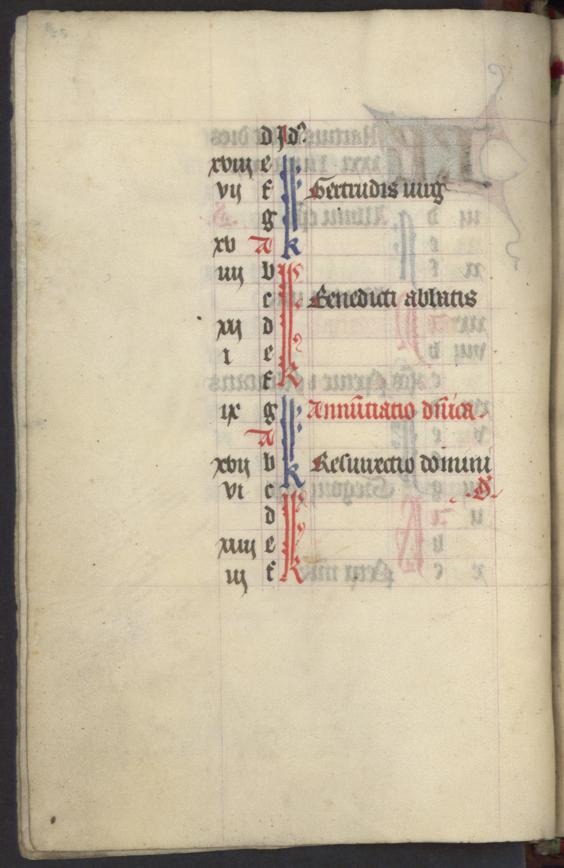 d Id⁹
xviij e
vij f Gertrudis uirg
g
xv A k
iiij b
c Benedicti abbatis
xij d
i e
f k
ix g Annūtiatio dn̄ica.
A
xvij b k Resurrectio domini
vi c
d
xiiij e
iij f k